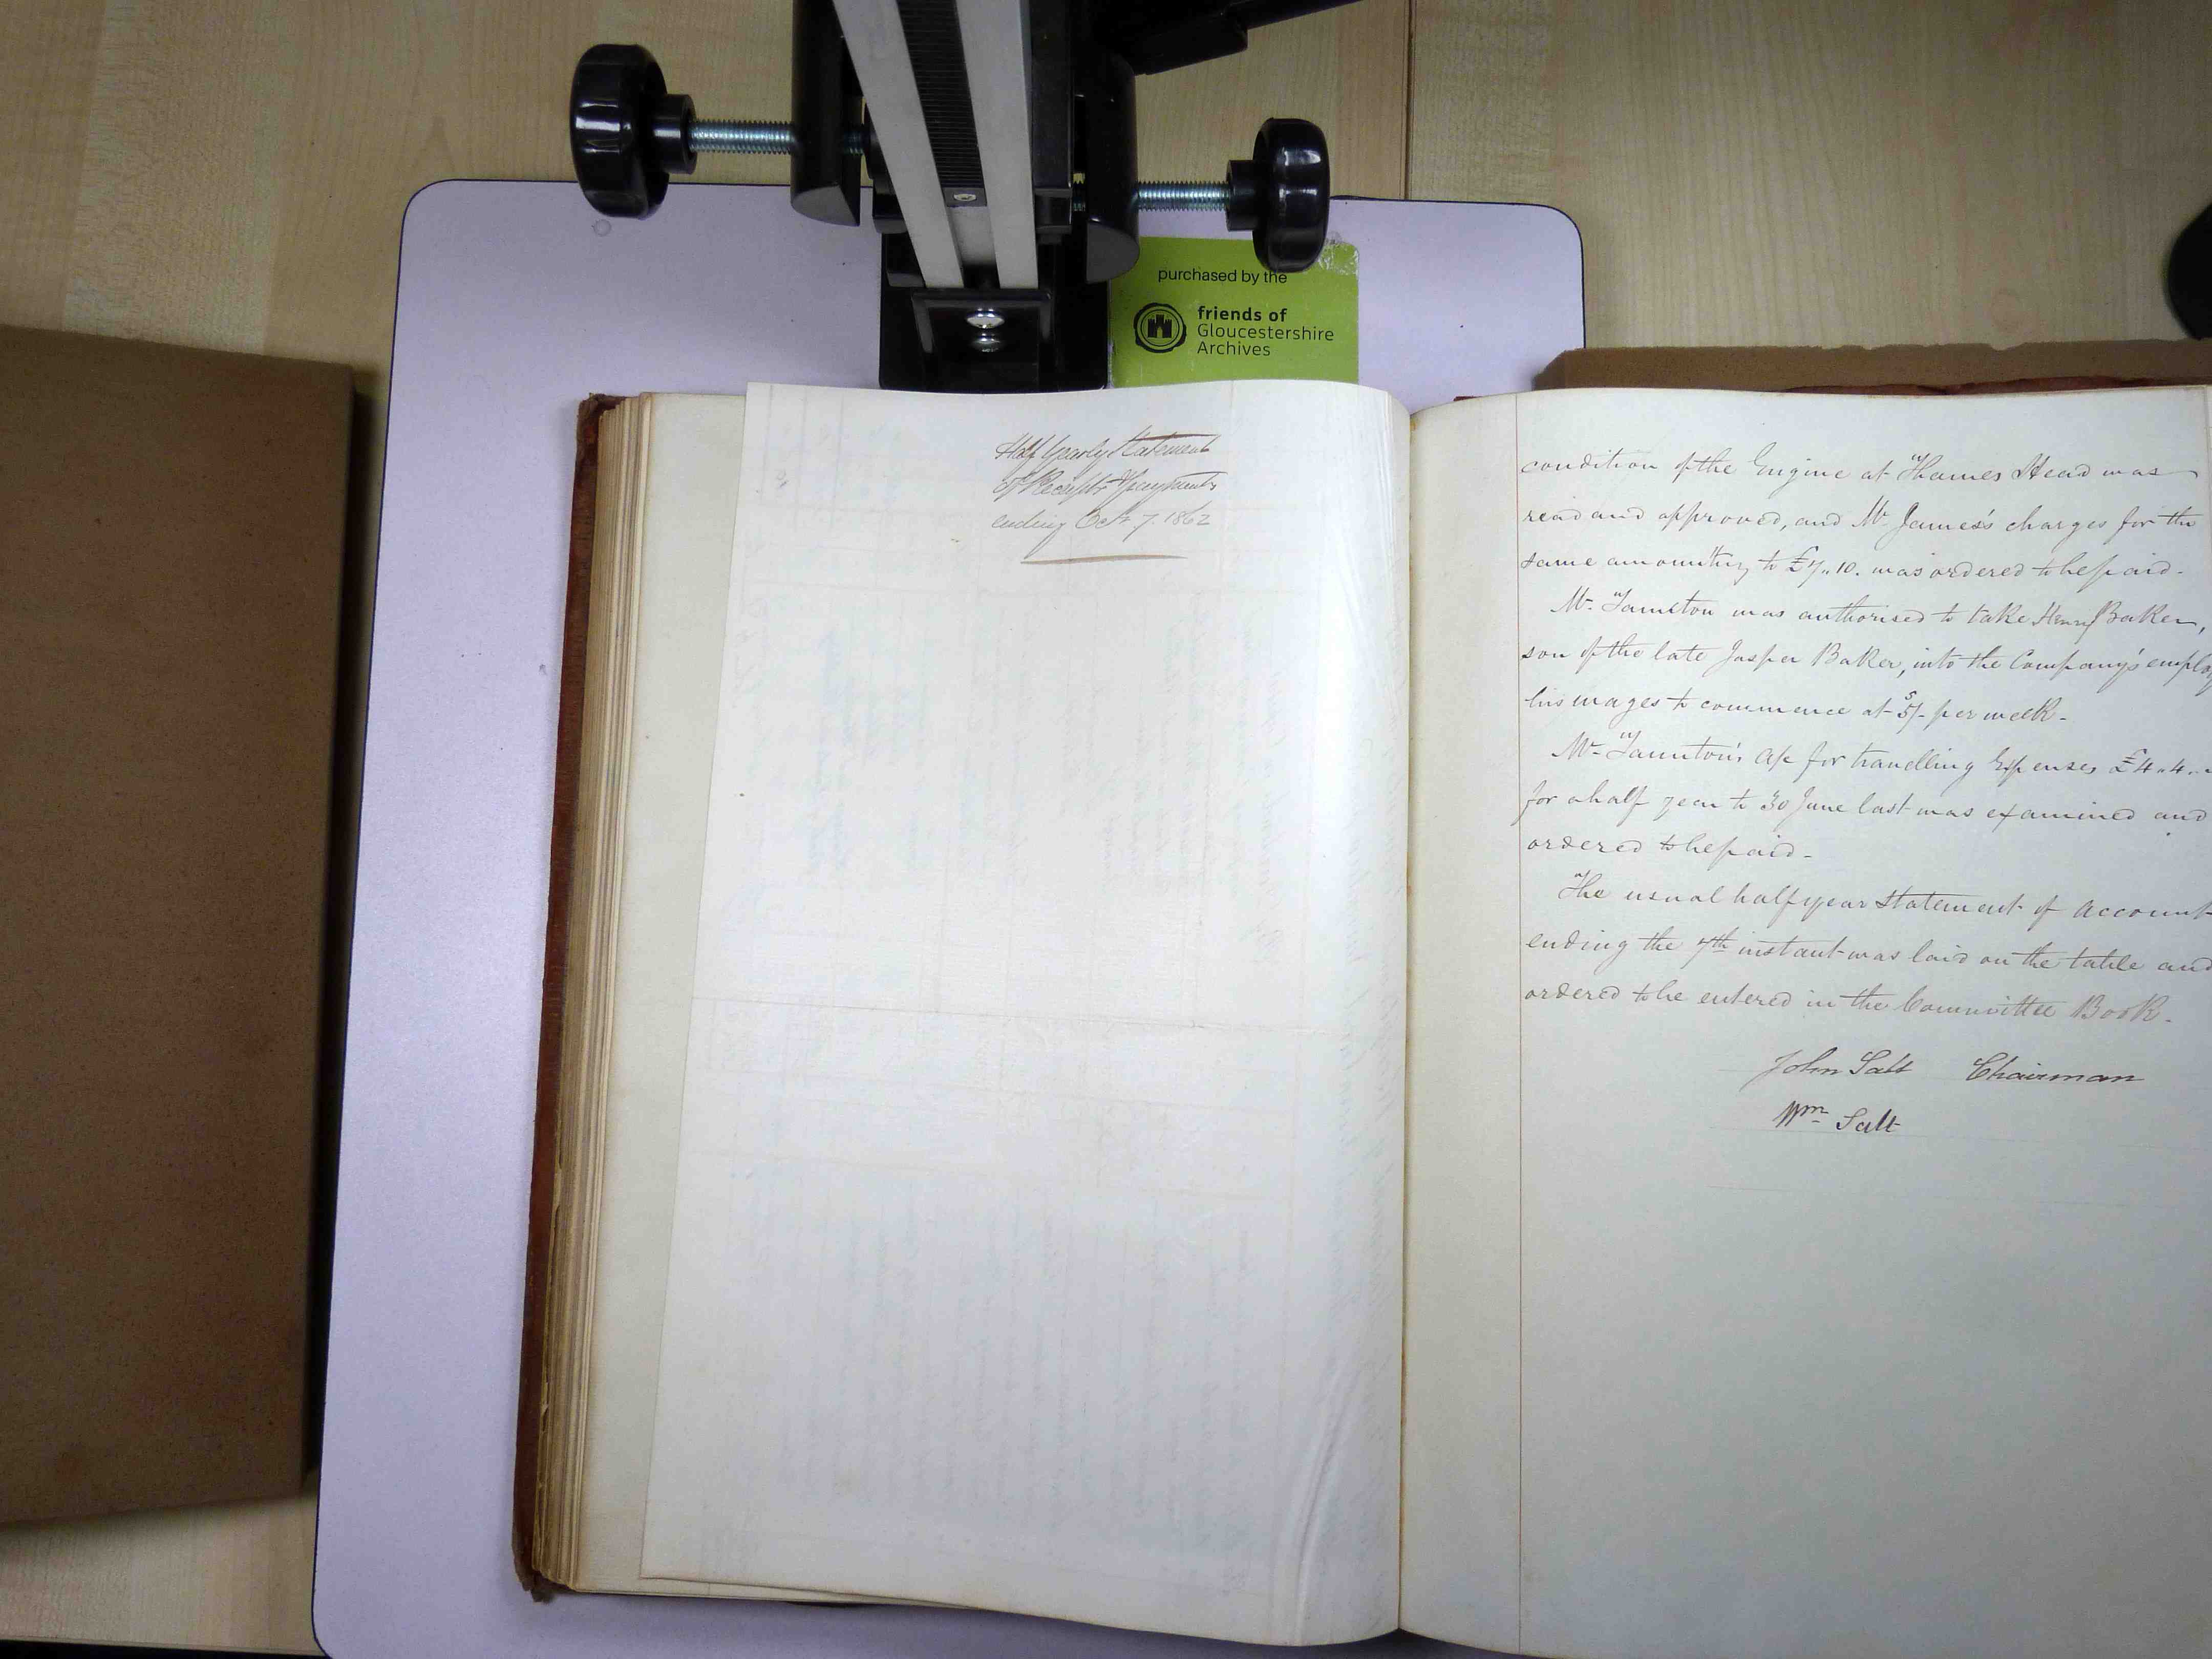 purchased by the
friends of
Gloucestershire
Archives
Half Yearly Statement
of Receipts & payments
ending Octr 7. 1862
condition of the Engine at Thames Head was
read and approved, and Mr. James's charges for the
same amounting to £7..10. was ordered to be paid.
Mr. Taunton was authorised to take Henry Baker,
son of the late Jasper Baker, into the Company's employ
his wages to commence at 5/- per week.
Mr. Taunton's A/c for travelling Expenses £4..4..
for a half year to 30 June last was examined and
ordered to be paid.
The usual half year statement of Account
ending the 7th instant was laid on the table and
ordered to be entered in the Committee Book.
John Salt Chairman
Wm Salt